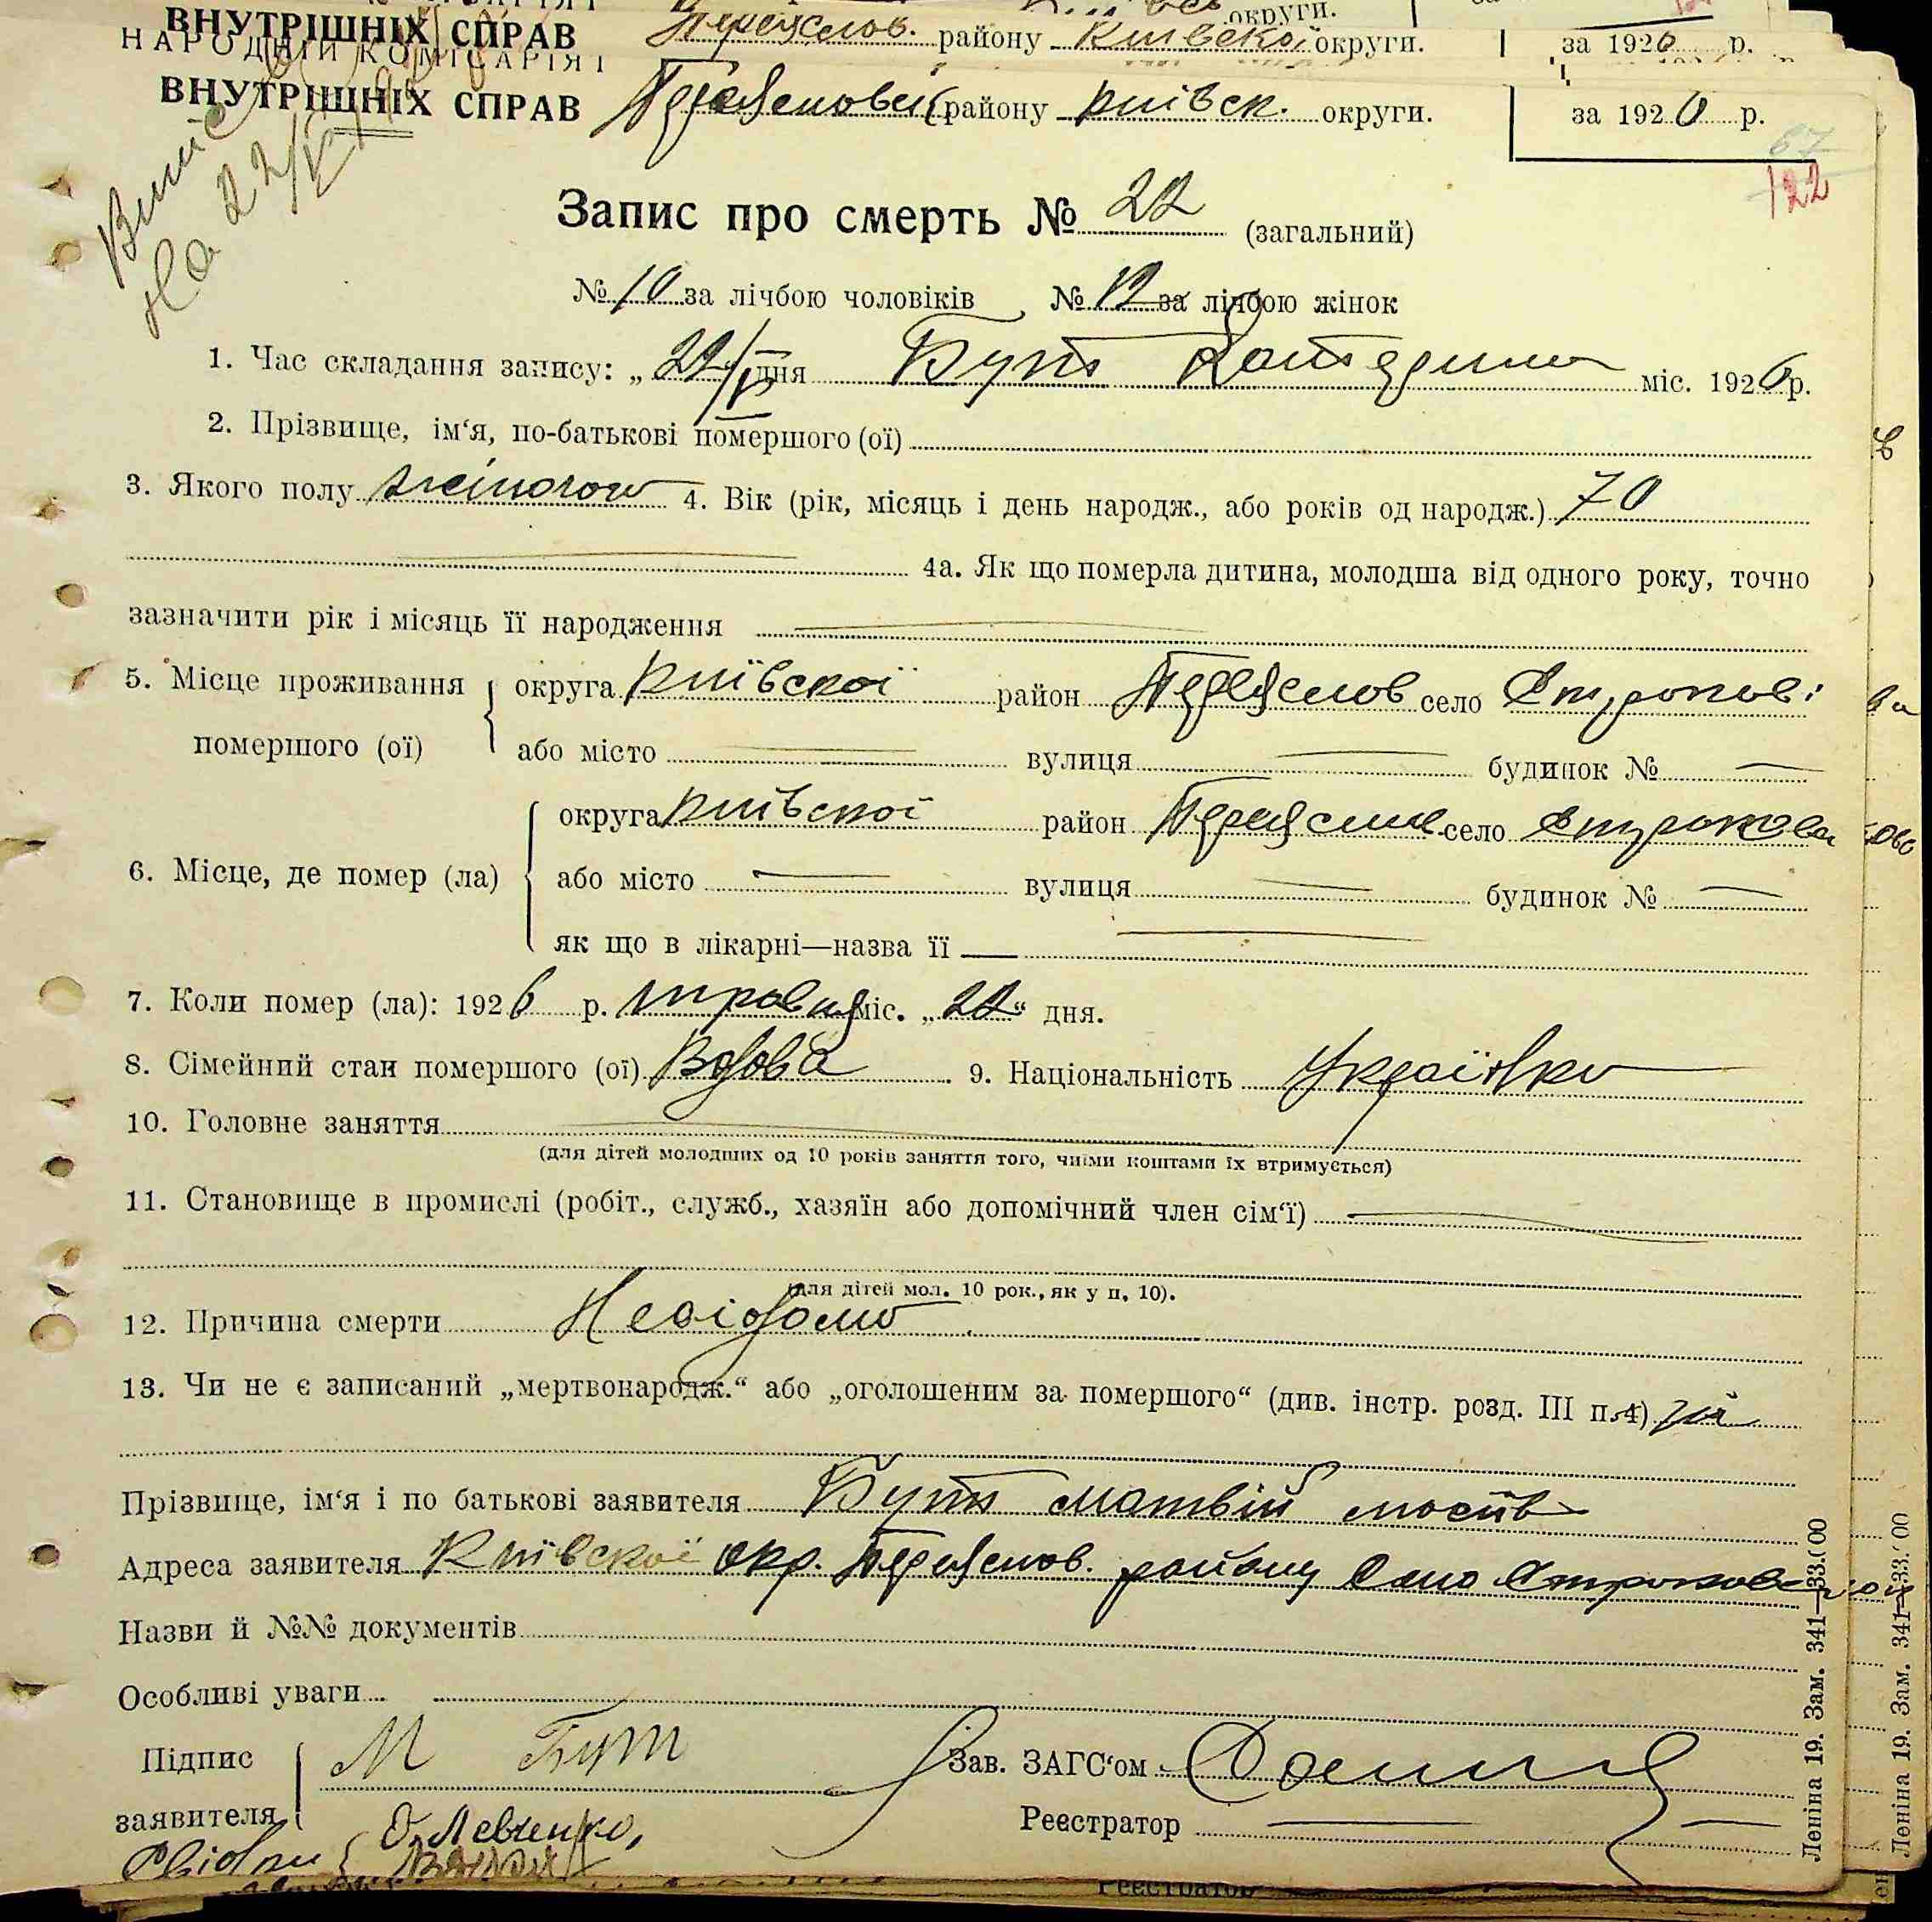 ВНУТРІШНІХ СПРАВ Переяслов. району Київської округи. за 1926 р.
НАРОДНІЙ КОМІСАРІЯТ
ВНУТРІШНІХ СПРАВ Переясловськ району Київск. округи. за 1926 р.
67
122
на 22/V
Запис про смерть № 22 (загальний)
№ 10 за лічбою чоловіків № 12 за лічбою жінок
1. Час складання запису: „22/V дня Бут Катерина міс. 1926 р.
2. Прізвище, ім‘я, по-батькові помершого (ої)
3. Якого полу жіночого 4. Вік (рік, місяць і день народж., або років од народж.) 70
4а. Як що померла дитина, молодша від одного року, точно
зазначити рік і місяць її народження
5. Місце проживання помершого (ої) округа Київскої район Переяслов село Строкові
або місто вулиця будинок №
6. Місце, де помер (ла) округа Київскої район Переяслив село Строкова
або місто вулиця будинок №
як що в лікарні—назва її
7. Коли помер (ла): 1926 р. травня міс. „22“ дня.
8. Сімейний стан помершого (ої) Вдова 9. Національність Українка
10. Головне заняття
(для дітей молодших од 10 років заняття того, чиїми коштами їх втримується)
11. Становище в промислі (робіт., служб., хазяїн або допомічний член сім‘ї)
(для дітей мол. 10 рок., як у п. 10).
12. Причина смерти Невідомо
13. Чи не є записаний „мертвонародж.“ або „оголошеним за помершого“ (див. інстр. розд. III п. 4)
Прізвище, ім‘я і по батькові заявителя Бут Матвій
Адреса заявителя Київскої окр. Переяслов. району Село
Назви й №№ документів
Особливі уваги
Підпис заявителя М Бут Зав. ЗАГС‘ом
Реєстратор
Свідки О. Левченко,
Леніна 19. Зам. 341—33.000
Леніна 19. Зам. 341—33.000
Реєстратор